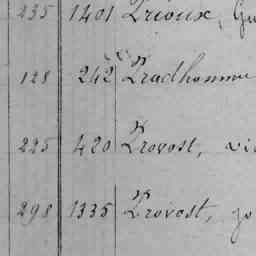 235 1401 Prioux, Gu
128 242 Pradhomme
225 420 Provost, vi
298 1335 Provost, jo